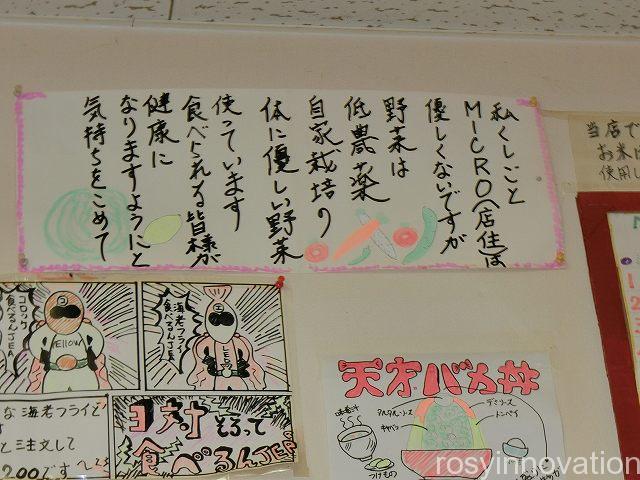 私くしごと
MICRO(店主)は
優しくないですが
野菜は
低農薬
自家栽培の
体に優しい野菜
使っています
食べられる皆様が
健康に
なりますようにと
気持ちをこめて
当店で
お米は
使用し
コロッケ
食べるんJEA
YELLOW
海老フライ
食べるんJEA
RED
な海老フライど
と注文して
200です
ヨッシャ そろって
食べるんJER
天才バカ丼
味噌汁
タルタルソース
キャベツ
デミソース
トンペイ
つけもの
rosyinnovation